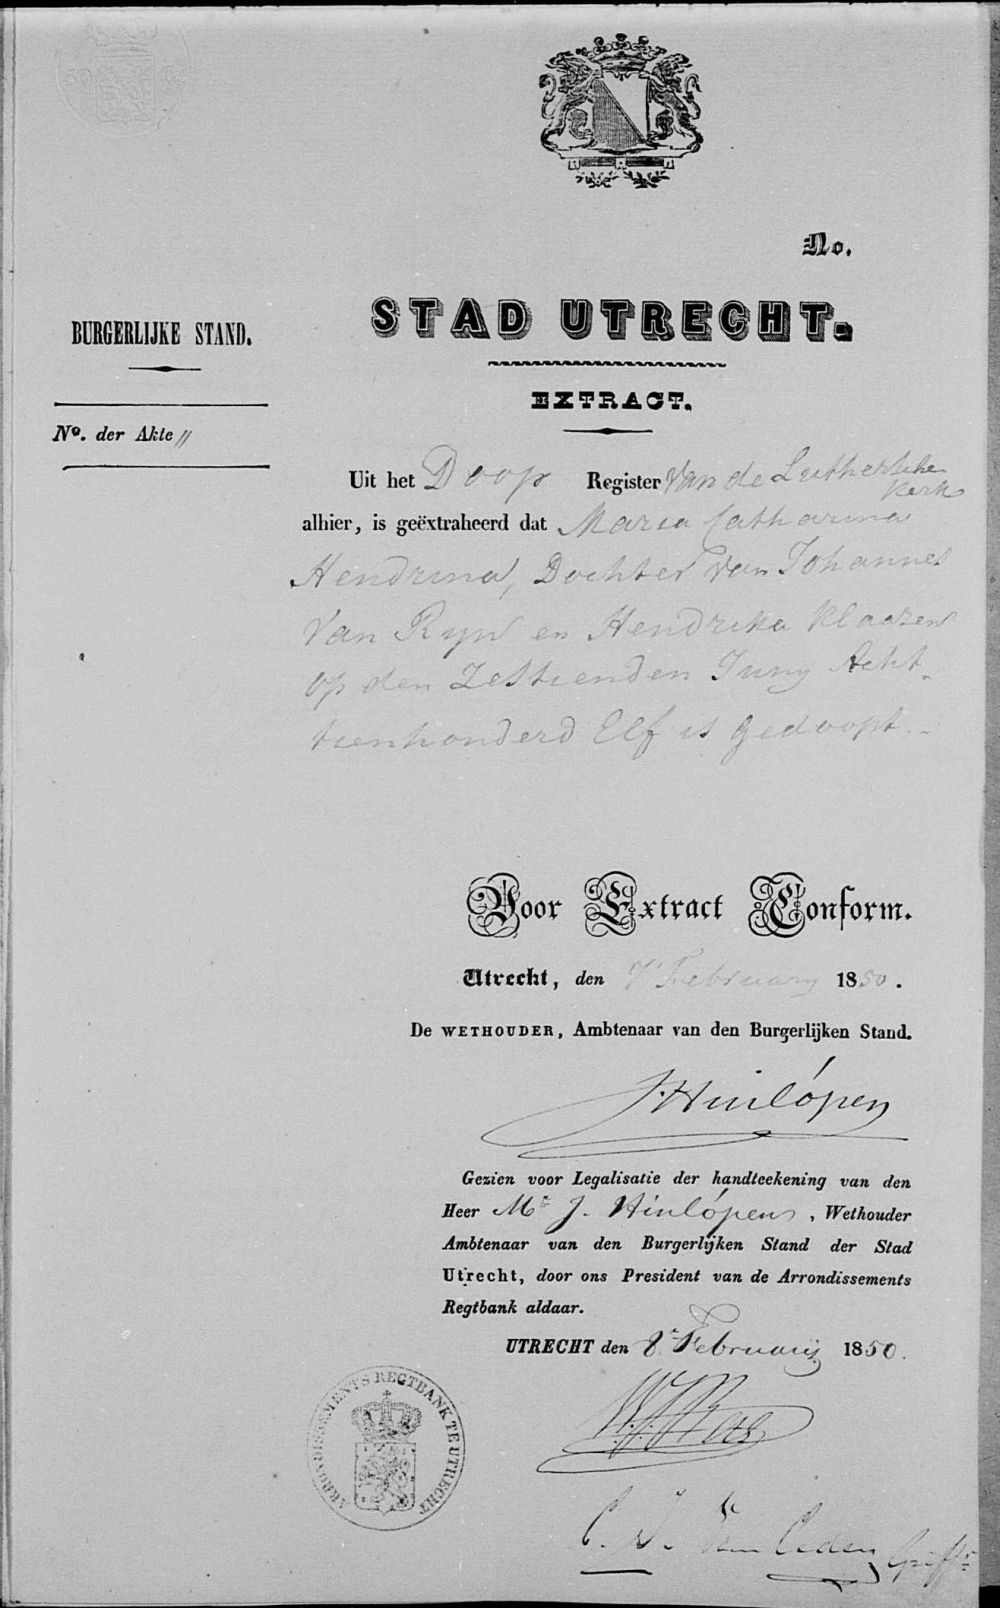 No.
BURGERLIJKE STAND.
STAD UTRECHT.
EXTRACT.
No. der Akte //
Uit het Doop Register van de Luthersche
Kerk
alhier, is geëxtraheerd dat Maria Catharina
Hendrina, Dochter van Johannes
van Ryn en Hendrika Klaazen
op den Zestienden Juny Acht-
tienhonderd Elf is gedoopt.
Voor Extract Conform.
Utrecht, den 7e February 1850.
De WETHOUDER, Ambtenaar van den Burgerlijken Stand.
J. Hinlópen
Gezien voor Legalisatie der handteekening van den
Heer Mr J. Hinlópen, Wethouder
Ambtenaar van den Burgerlijken Stand der Stad
Utrecht, door ons President van de Arrondissements
Regtbank aldaar.
UTRECHT den 8e Februarij 1850.
ARRONDISSEMENTS REGTBANK TE UTRECHT
C. van Griffr